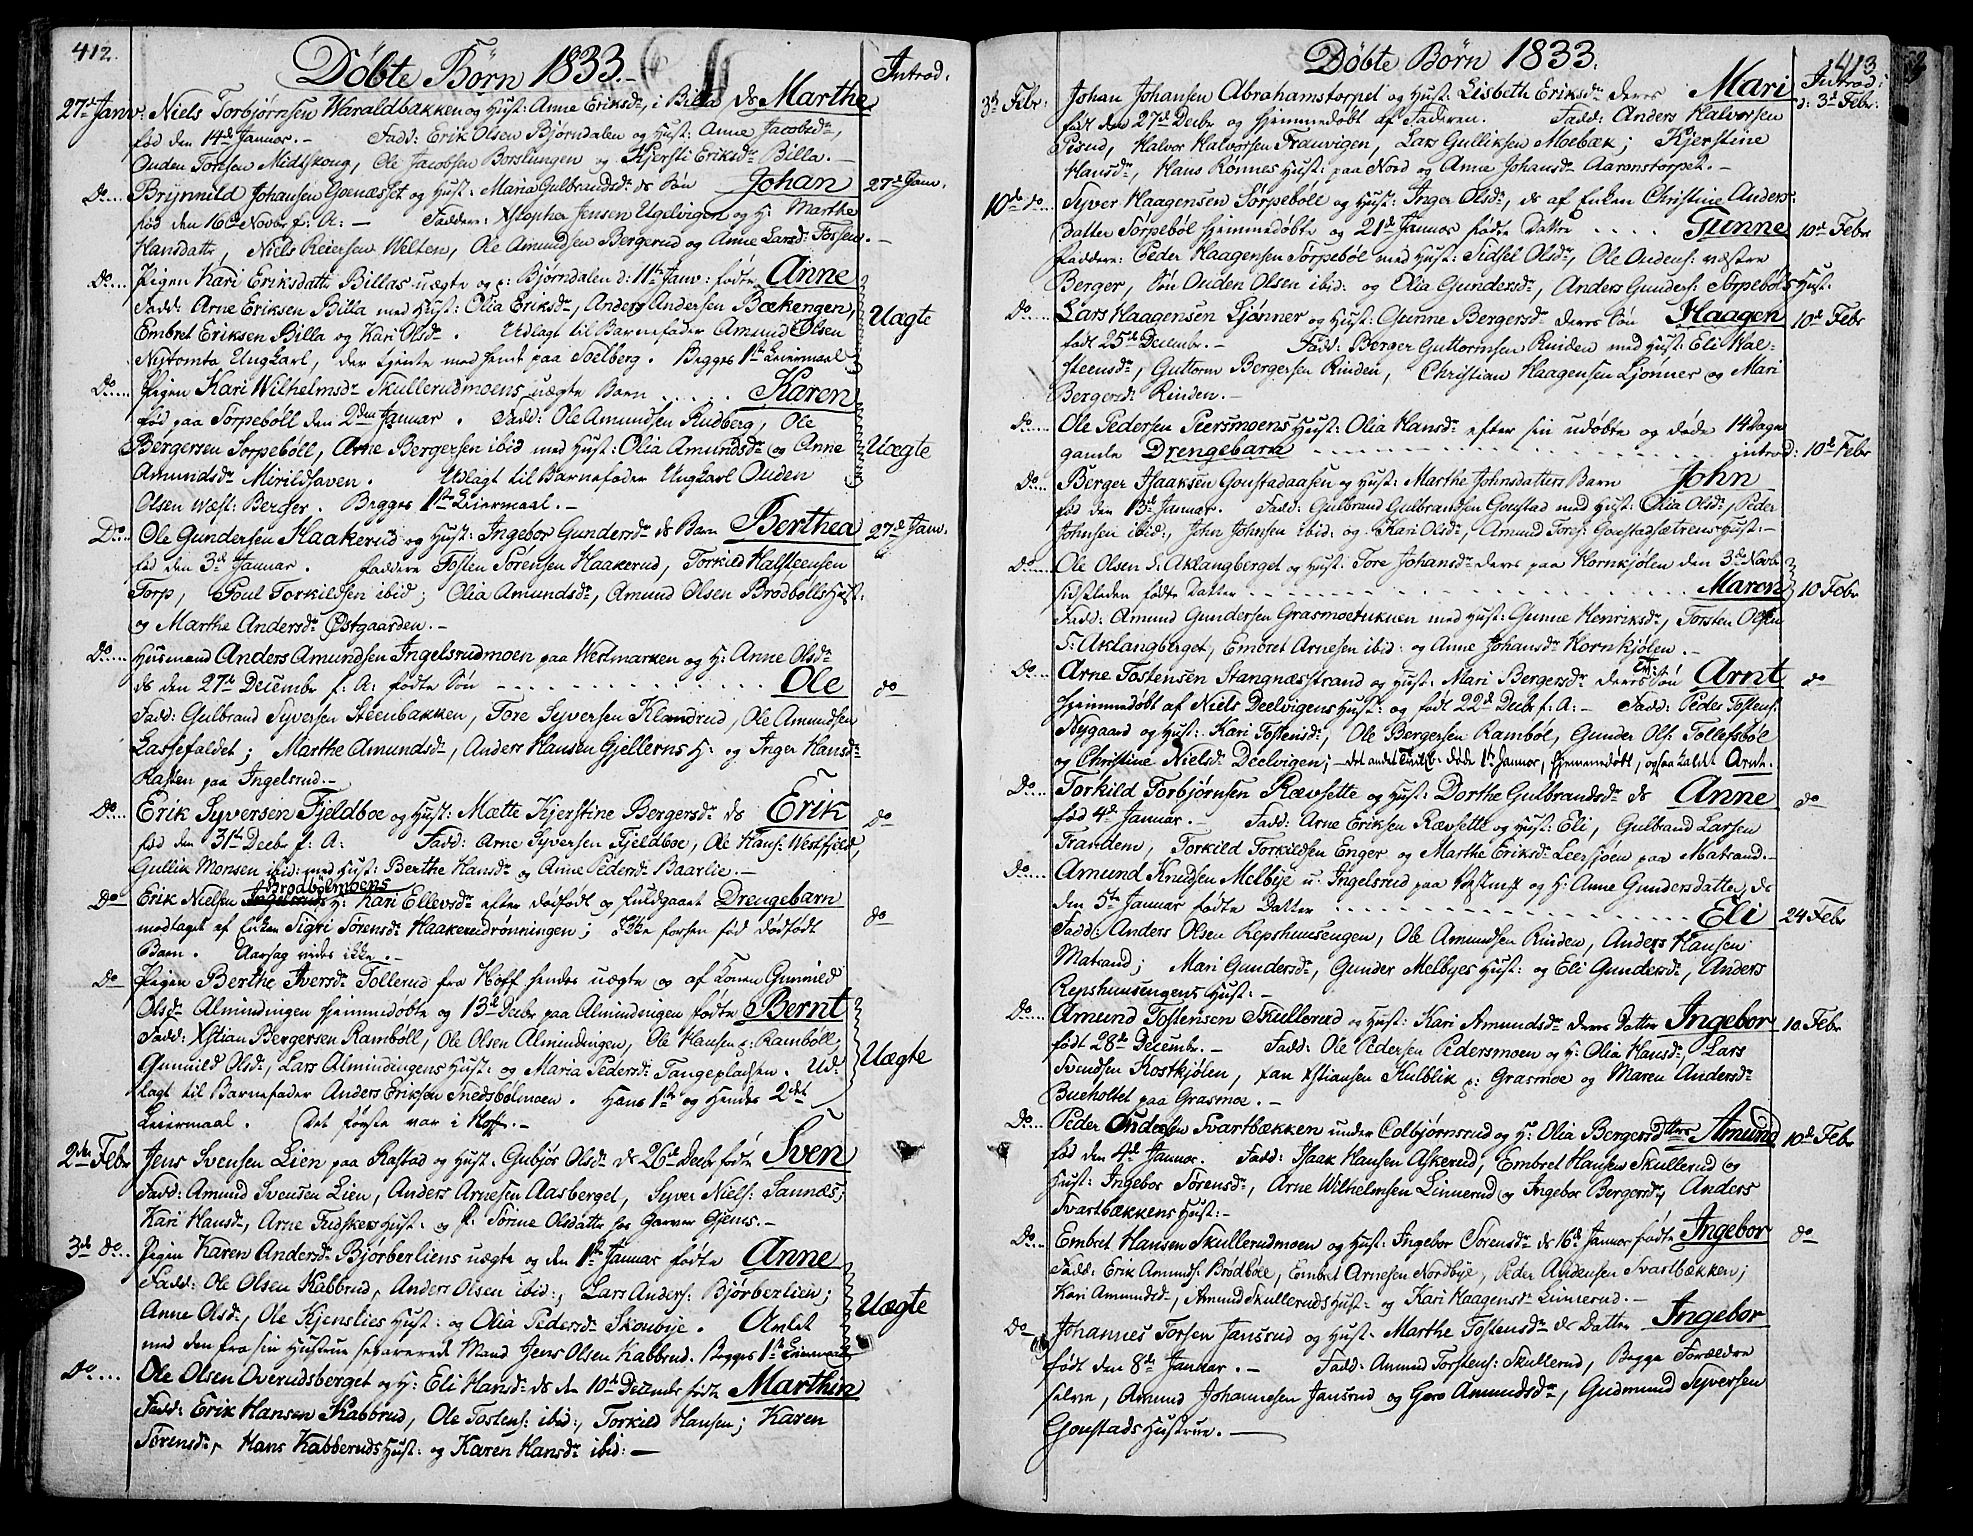 412.
Døbte Børn 1833.
Introd:
27de Janv: Niels Torbjørnsen Waraldbakken og Hust: Anne Eriksdr, i Billa ds Marthe
fød den 14de Januar. – Fadd: Erik Olsen Bjørndalen og Hust: Anne Jacobsdr,
Ouden Torsen Midtskoug, Ole Jacobsen Borslungen og Kjersti Eriksdr Billa. –
Do.... Brynnild Johansen Goenæsset og Hust: Maria Gulbrandsdr ds Søn Johan 27de Janv.
fød den 16de Novbr f: A: – Faddere: Xstopher Jensen Ugelvigen og H: Marthe
Hansdattr, Niels Reiersen Welten, Ole Amundsen Bergerud og Anne Larsdr Fossen. –
Do.... Pigen Kari Eriksdattr Billas uægte og p: Bjørndalen d: 11te Janv: fødte Anne
Fadd: Arne Eriksen Billa med Hust: Olia Eriksdr, Anders Andersen Bækengen, Uægte
Embret Eriksen Billa og Kari Olsdr. Udlagt til Barnefader Amund Olsen
Nystrømto Ungkarl, der tjente med hent paa Soelberg. Begges 1ste Leiermaal
Do.... Pigen Kari Wilhelmsdr Skullerudmoens uægte Barn .... Karen
fød paa Sorpebøll den 2den Januar. Fadd: Ole Amundsen Rudberg, Ole
Bergersen Sorpebøll, Arne Bergersen ibid med Hust: Olia Amundsdr og Anne Uægte
Amundsdr Mirildhaven. Udlagt til Barnefader Ungkarl Ouden
Olsen West: Berger. Begges 1ste Leiermaal. –
Do... Ole Gundersen Haakerud og Hust: Ingebor Gundersdr ds Barn Berthea 27de Janv.
fød den 3de Januar. Faddere Tosten Sørensen Haakerud, Torkild Halsteensen
Torp, Poul Torkildsen ibid; Olia Amundsdr, Amund Olsen Brødbølls Hust:
og Marthe Andersdr Østgaarden. –
Do.... Husmand Anders Amundsen Ingelsrudmoen paa Westmarken og H: Anne Olsdr
ds den 27de Decembr f: A: fødte Søn - - - - - Ole do
Fadd: Gulbrand Syversen Steenbakken, Tore Syversen Klandrud, Ole Amundsen
Lassefaldet; Marthe Amundsdr, Anders Hansen Gjellerns H: og Inger Hansdr
Hasten paa Ingelsrud. –
Do.... Erik Syversen Fjeldboe og Hust: Mætte Kjerstine Bergersdr ds Erik do
fød den 31te Decbr f: A: Fadd: Arne Syversen Fjeldboe, Ole Hans: Westfjeld,
Gullik Monsen ibid: med Hust: Berthe Hansdr og Anne Pedersdr Baarlie. –
Brødbølmoens
Do Erik Nielsen Ingelsruds H: Kari Ellevsdr efter dødfødt og fuldgaaet Drengebarn do
modtaget af Enken Sigri Sørensdr Haakerudrønningen; Ikke forhen fød dødfødt
Barn. Aarsag vides ikke. –
Do Pigen Berthe Iversdr Tollerud fra Hoff hendes uægte og af Konen Gunnild
Olsdr Almindingen hjemmedøbte og 13de Decbr paa Almindingen fødte Bernt
Fadd: Xstian Bergersen Rambøll, Ole Olsen Almindingen, Ole Hansen p: Rambøll,
Gunnild Olsdr, Lars Almindingens Hust: og Maria Pedersdr Tangepladsen. Ud- Uægte
lagt til Barnefader Anders Eriksen Snedsbølmoen. Hans 1ste og hendes 2det
Leiermaal. Det første var i Hoff. –
2den Febr Jens Svensen Lien paa Rastad og Hust. Gubjør Olsdr ds 26de Decbr fødte Sven
Fadd: Amund Svensen Lien, Anders Arnesen Aasberget, Syver Niels: Sannæs;
Kari Hansdr, Arne Fredskers Hust: og P. Sørine Olsdatte hos Garver Gjems. –
3de do... Pigen Karen Andersdr Bjørberliens uægte og den 1ste Januar fødte Anne
Fadd: Ole Olsen Kabbrud, Anders Olsen ibid:, Lars Anders: Bjørberlien;
Anne Olsdr, Ole Kjenslies Hust: og Olia Pedersdr Skoubye. Avlet Uægte
med den fra sin Hustrue separerede Mand Jens Olsen Kabbrud. Begges 1ste Leiermaal
Do.... Ole Olsen Overudsberget og H: Eli Hansdr ds den 10de Decembr fødte Marthin
Fadd: Erik Hansen Kabbrud, Ole Tostens: ibid:, Torkild Hansen; Karen
Sørensdr, Hans Kabberuds Hust: og Karen Hansdr ibid: –
Døbte Børn 1833.
413
Introd:
3de Febr: Johan Johansen Abrahamstorpet og Hust: Lisbeth Eriksdr deres Mari d: 3de Febr:
født den 27de Decbr og hjemmedøbt af Faderen. Fadd: Anders Halvorsen
Pisud, Halvor Halvorsen Frauvigen, Lars Gulliksen Moebæk; Kjerstine
Hansdr, Hans Rønnes Hust: paa Nord og Anne Johansdr Aaronstorpet. –
10de do... Syver Haagensen Sorpeböle og Hust: Inger Olsdr, ds af Enken Christine Anders-
datter Sorpebøl hjemmedøbte og 21de Januar fødte Datter .... Gunne 10de Febr
Faddere: Peder Haagensen Sorpebøl med Hust: Sidsel Olsdr, Ole Oudens: væstre
Berger, Søn Ouden Olsen ibid: og Olia Gundersdr, Anders Gunders: Sorpebøls Hust.
Do.... Lars Haagensen Ljønner og Hust: Gunne Bergersdr deres Søn Haagen 10de Febr
født 25de Decembr. – Fadd: Berger Guttormsen Rinden med Hust: Eli Hal-
steensdr, Guttorm Bergersen Rinden, Christian Haagensen Ljønner og Mari
Bergersdr Rinden. –
Do... Ole Pedersen Peersmoens Hust: Olia Hansdr efter sin udøbte og døde 14 Dage
gamle Drengebarn - - - - - introd: 10de Febr
Do.... Berger Isaaksen Goustadaasen og Hust: Marthe Johnsdatters Barn John
fød den 13de Januar. Fadd: Gulbrand Gulbrandsen Goustad med Hust: Olia Olsdr, Peder
Johnsen ibid:, John Johnsen ibid: og Kari Olsdr, Amund Torst: Goustadsætrens Hust: –
Do... Ole Olsen S: Aklangberget og Hust: Tore Johansdr deres paa Kornkjølen den 3de Novbr
sidstleden fødte Datter - - - - - Maren 10 Febr
Fadd: Amund Gundersen Grasmoetuknen med Hust: Gunne Henriksdr, Torsten Olsen
S: Aklangberget, Embret Arnesen ibid: og Anne Johansdr Kornkjølen. –
Do... Arne Tostensen Stangnæsstrand og Hust: Mari Bergersdr deres Tv: Søn Arnt do
hjemmedøbt af Niels Deelvigens Hust: og født 22de Decbr f: A: – Fadd: Peder Tostens:
Nygaard og Hust: Kari Tostensdr, Ole Bergersen Rambøl, Gunder Ols: Tollefsbøl
og Christine Nielsdr Deelvigen; – det andet Tvill: B: døde 1ste Januar, hjemmedøbt, ogsaa kaldet Arnt.
Do... Torkild Torbjørnsen Rævsette og Hust: Dorthe Gulbrandsdr ds Anne do
fød 4de Januar. – Fadd: Arne Eriksen Rævsette og Hust: Eli, Gulbrand Larsen
Trandem, Torkild Torkildsen Enger og Marthe Eriksdr Leersjøen paa Matrand. –
Do.... Amund Knudsen Melbye u: Ingelsrud paa Væstm: og H: Anne Gundersdatter, ds
den 5te Januar fødte Datter - - - - - Eli 24 Febr
Fadd: Anders Olsen Repshuusengen, Ole Amundsen Rinden, Anders Hansen
Matrand; Mari Gundersdr, Gunder Melbyes Hust: og Eli Gundersdr, Anders
Repshuusengens Hust: –
Do... Amund Tostensen Skullerud og Hust: Kari Amundsdr deres Datter Ingebor 10. Febr
født 28de Decembr. – Fadd: Ole Pedersen Pedersmoen og H: Olia Hansdr, Lars
Svendsen Kostkjølen, Jan Xstiansen Kulblik p: Grasmoe og Maren Andersdr
Bueholtet paa Grasmoe. –
Do... Peder Oudensen Svartbækken under Colbjørnsrud og H: Olia Bergersdtters Amund 10de Febr
fød den 4de Januar. Fadd: Isaak Hansen Askerud, Embret Hansen Skullerud og
Hust: Ingebor Sørensdr, Arne Wilhelmsen Linnerud og Ingebor Bergersdr, Anders
Svartbækkens Hust: –
Do... Embret Hansen Skullerudmoen og Hust: Ingebor Sørensdr ds 16de Januar fødte Ingebor do
Fadd: Erik Amunds: Brødbøll, Embret Arnesen Nordbye, Peder Oudensen Svartbækken;
Kari Amundsdr, Amund Skulleruds Hust: og Kari Haagensdr Linnerud. –
Do Johannes Torsen Jansrud og Hust: Marthe Tostensdr ds Datter Ingebor
født den 8de Januar. – Fadd: Amund Torstens: Skullerud, Begge Forældre
selve, Amund Johannesen Jansrud og Goro Amundsdr, Gudmund Syversen
Goustads Hustrue. –